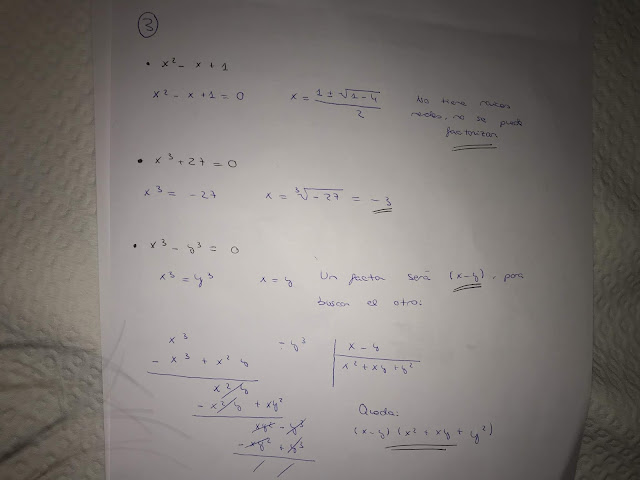 3
• x² - x + 1
x² - x + 1 = 0 x = (1 ± √(1-4))/2 No tiene raíces
reales, no se puede
factorizar
• x³ + 27 = 0
x³ = -27 x = ³√-27 = -3
• x³ - y³ = 0
x³ = y³ x = y Un factor será (x-y), para
buscar el otro:
x³ - y³ | x - y
- x³ + x² y x² + xy + y²
x² y
- x² y + xy²
xy² - y³
- xy² + y³
/ /
Queda:
(x-y) (x² + xy + y²)